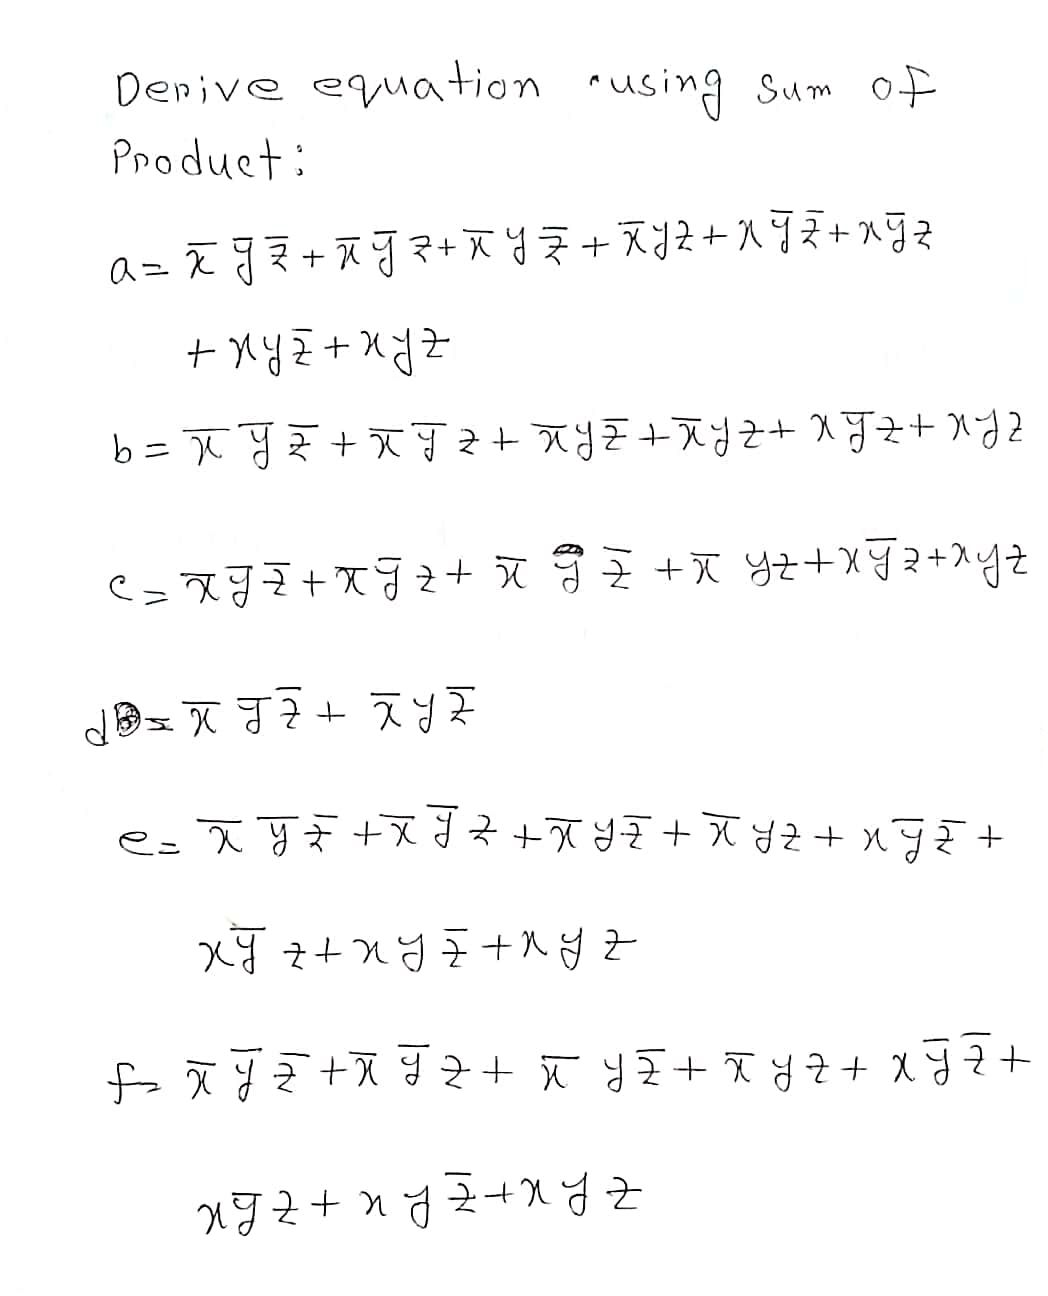 Derive equation using sum of
Product:
a = x̄ ȳ z̄ + x̄ ȳ z + x̄ y z̄ + x̄ y z + x ȳ z̄ + x ȳ z
+ x y z̄ + x y z
b = x̄ ȳ z̄ + x̄ ȳ z + x̄ y z̄ + x̄ y z + x ȳ z + x y z
c = x̄ ȳ z̄ + x̄ ȳ z + x̄ y z̄ + x̄ y z + x ȳ z + x y z
d = x̄ ȳ z̄ + x̄ y z̄
e = x̄ ȳ z̄ + x̄ ȳ z + x̄ y z̄ + x̄ y z + x ȳ z̄ +
x ȳ z + x y z̄ + x y z
f = x̄ ȳ z̄ + x̄ ȳ z + x̄ y z̄ + x̄ y z + x ȳ z̄ +
x ȳ z + x y z̄ + x y z